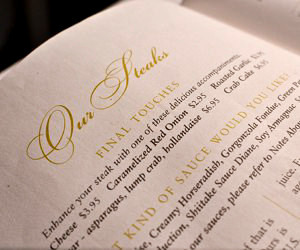 Our Steaks
FINAL TOUCHES
Enhance your steak with one of these delicious accompaniments.
Caramelized Red Onion $2.95 Roasted Garlic
Cheese $3.95 Crab Cake $6.95
- asparagus, lump crab, hollandaise $6.95
T KIND OF SAUCE WOULD YOU LIKE?
Creamy Horseradish, Gorgonzola Fondue, Green P
duction, Shiitake Sauce Diane, Soy Armagnac
our sauces, please refer to Notes Abou
juice.